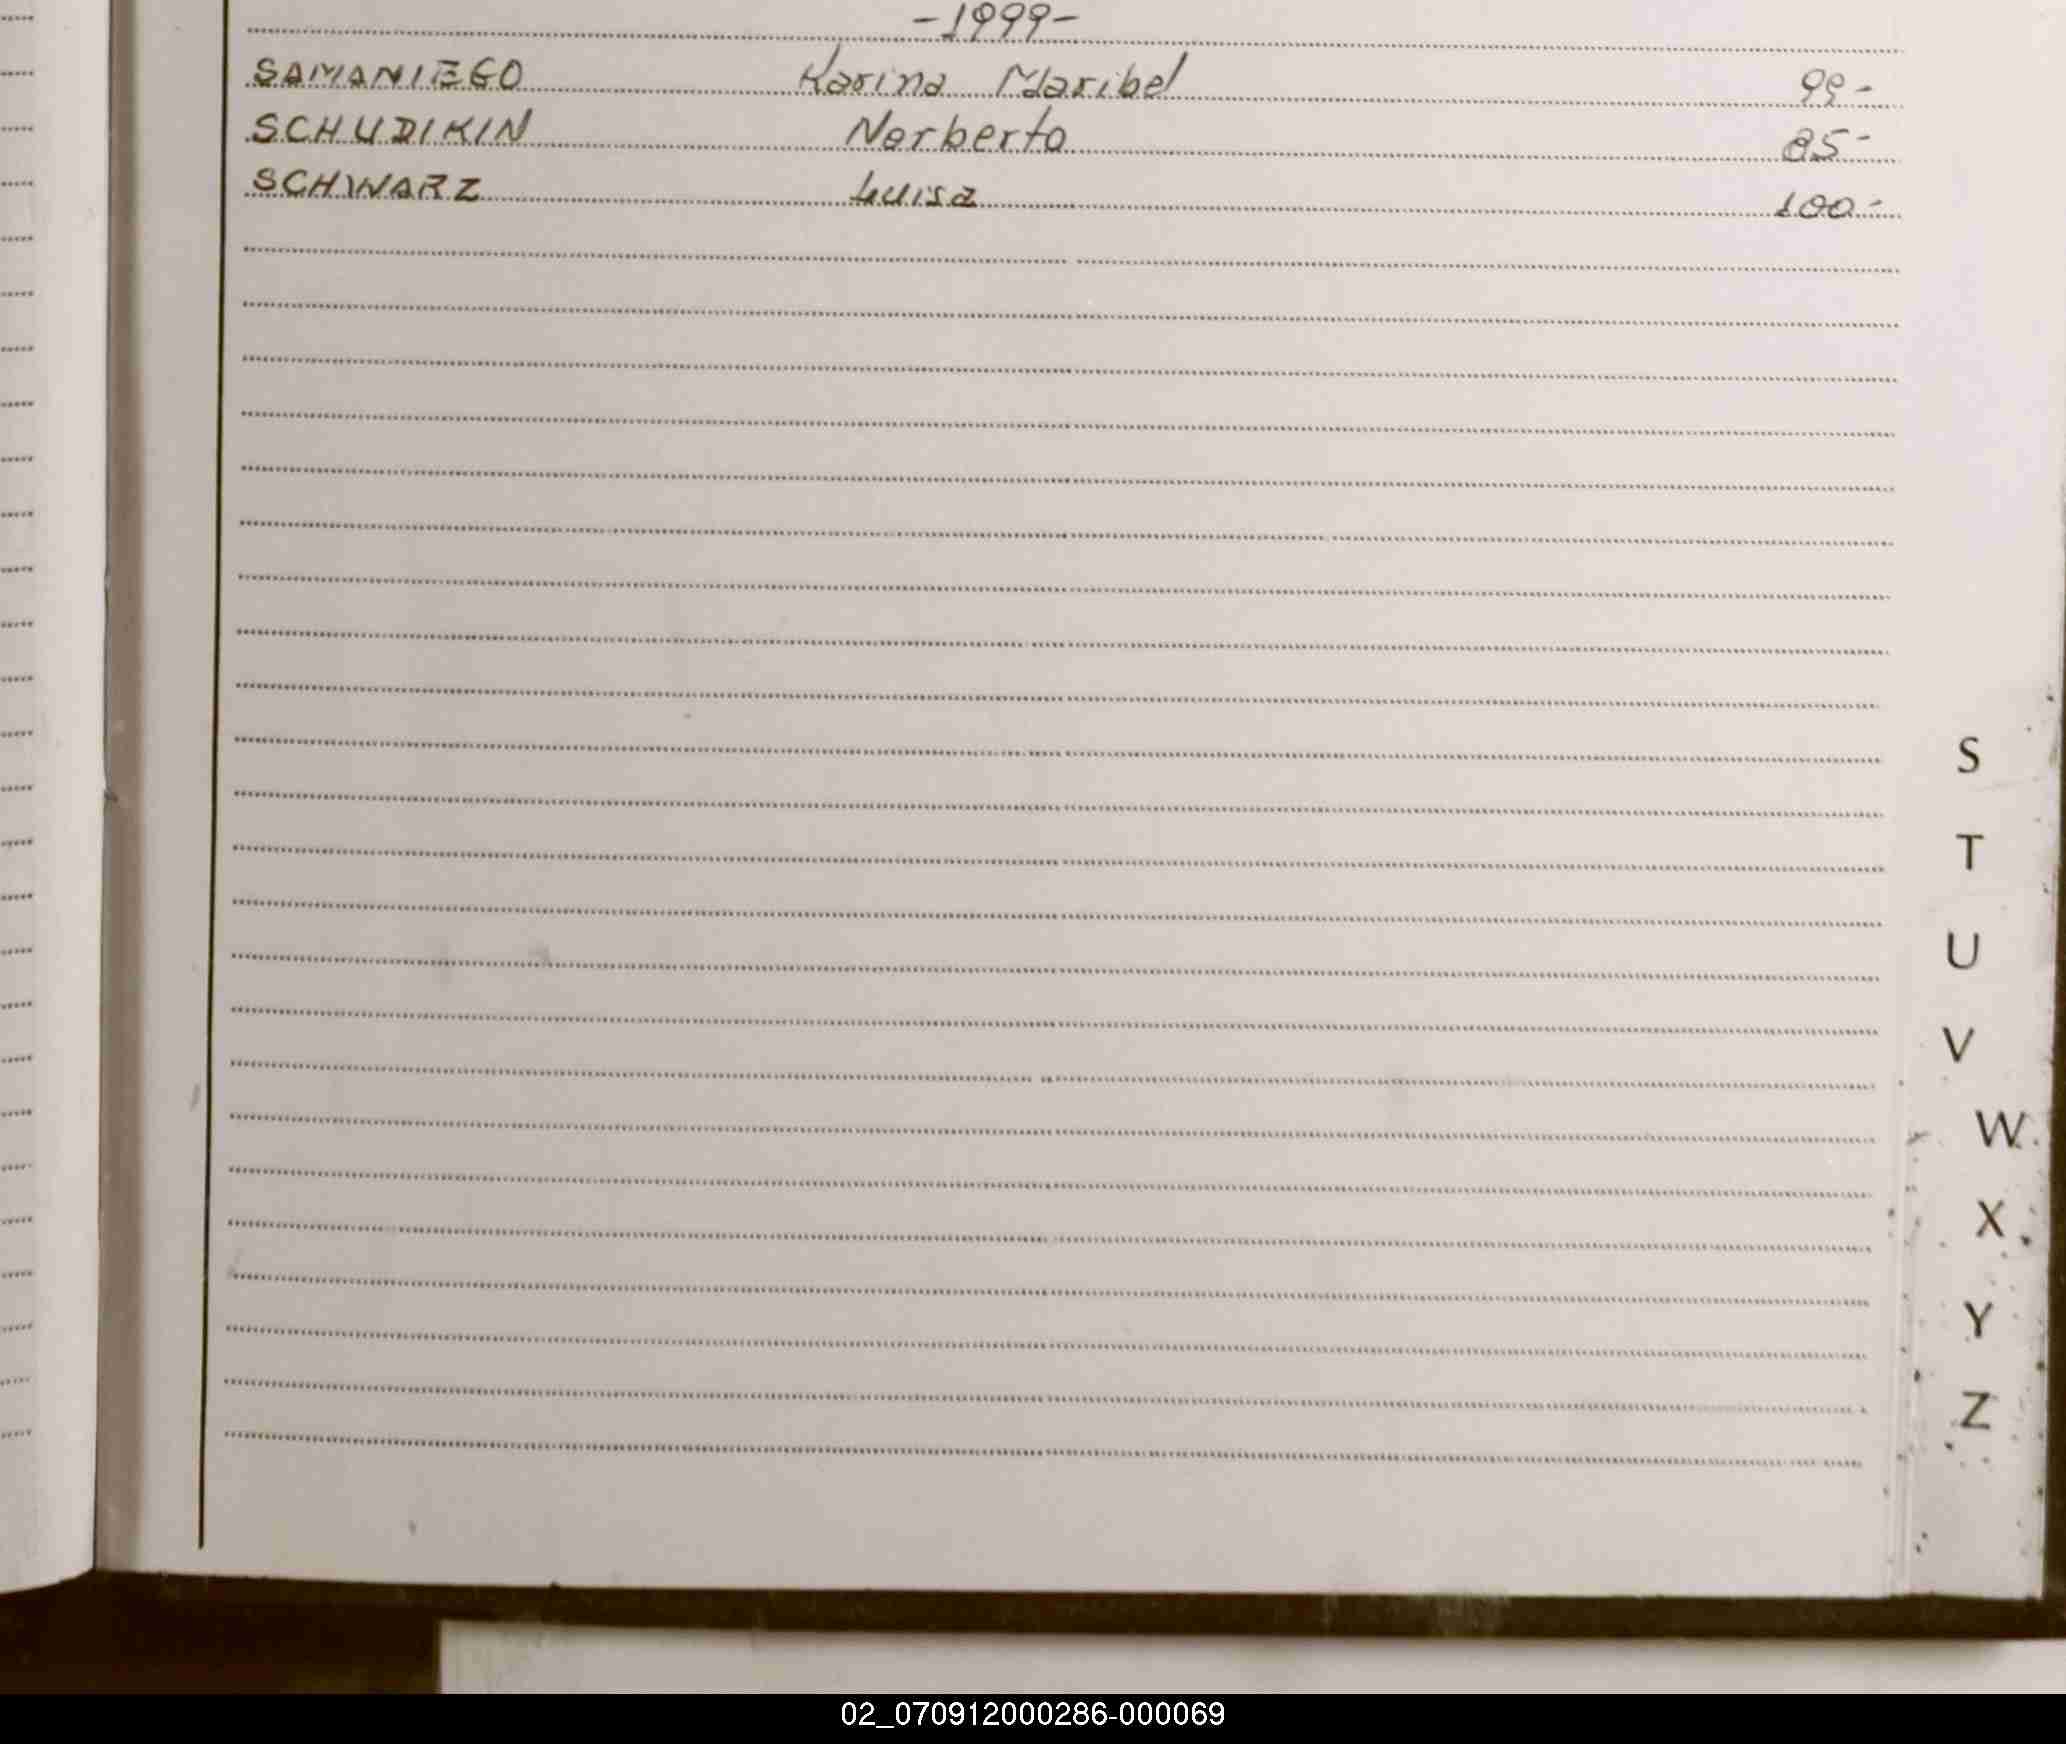 -1999-
SAMANIEGO Karina Maribel 99-
SCHUDIKIN Norberto 85-
SCHWARZ Luisa 100-
S
T
U
V
W
X
Y
Z
02_070912000286-000069